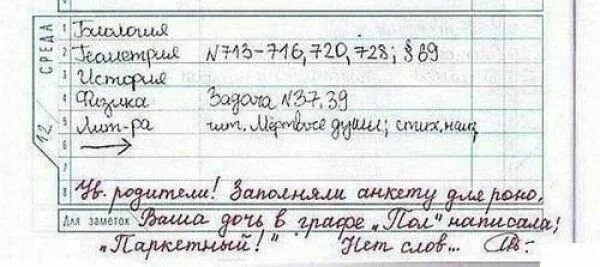 СРЕДА
12
1 Биология
2 Геометрия N713-716, 720, 728; § 89
3 История
4 Физика Задача N37, 39
5 Лит-ра чит. Мёртвые души; стих. наиз
6
7
8 Ув. родители! Заполняли анкету для роно.
Для заметок Ваша дочь в графе „Пол" написала:
„Паркетный!" Нет слов...